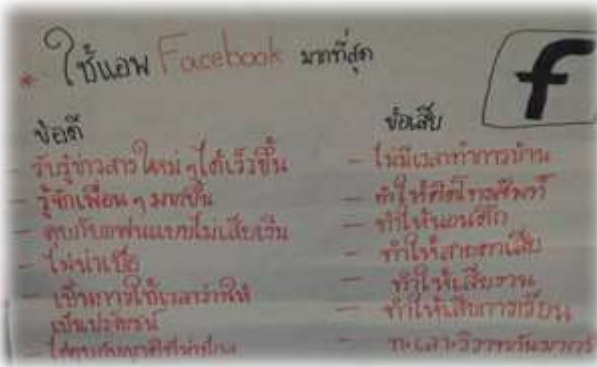 ใช้แอพ Facebook มากที่สุด
f
ข้อดี
- รับรู้ข่าวสารใหม่ๆได้เร็วขึ้น
- รู้จักเพื่อนๆมากขึ้น
- คุยกับแฟนแบบไม่เสียเงิน
- ไม่น่าเบื่อ
- เป็นการใช้เวลาว่างให้
เป็นประโยชน์
ข้อเสีย
- ไม่มีเวลาทำการบ้าน
- ทำให้ติดโทรศัพท์
- ทำให้นอนดึก
- ทำให้สายตาเสีย
- ทำให้เสียงาน
- ทำให้เสียการเรียน